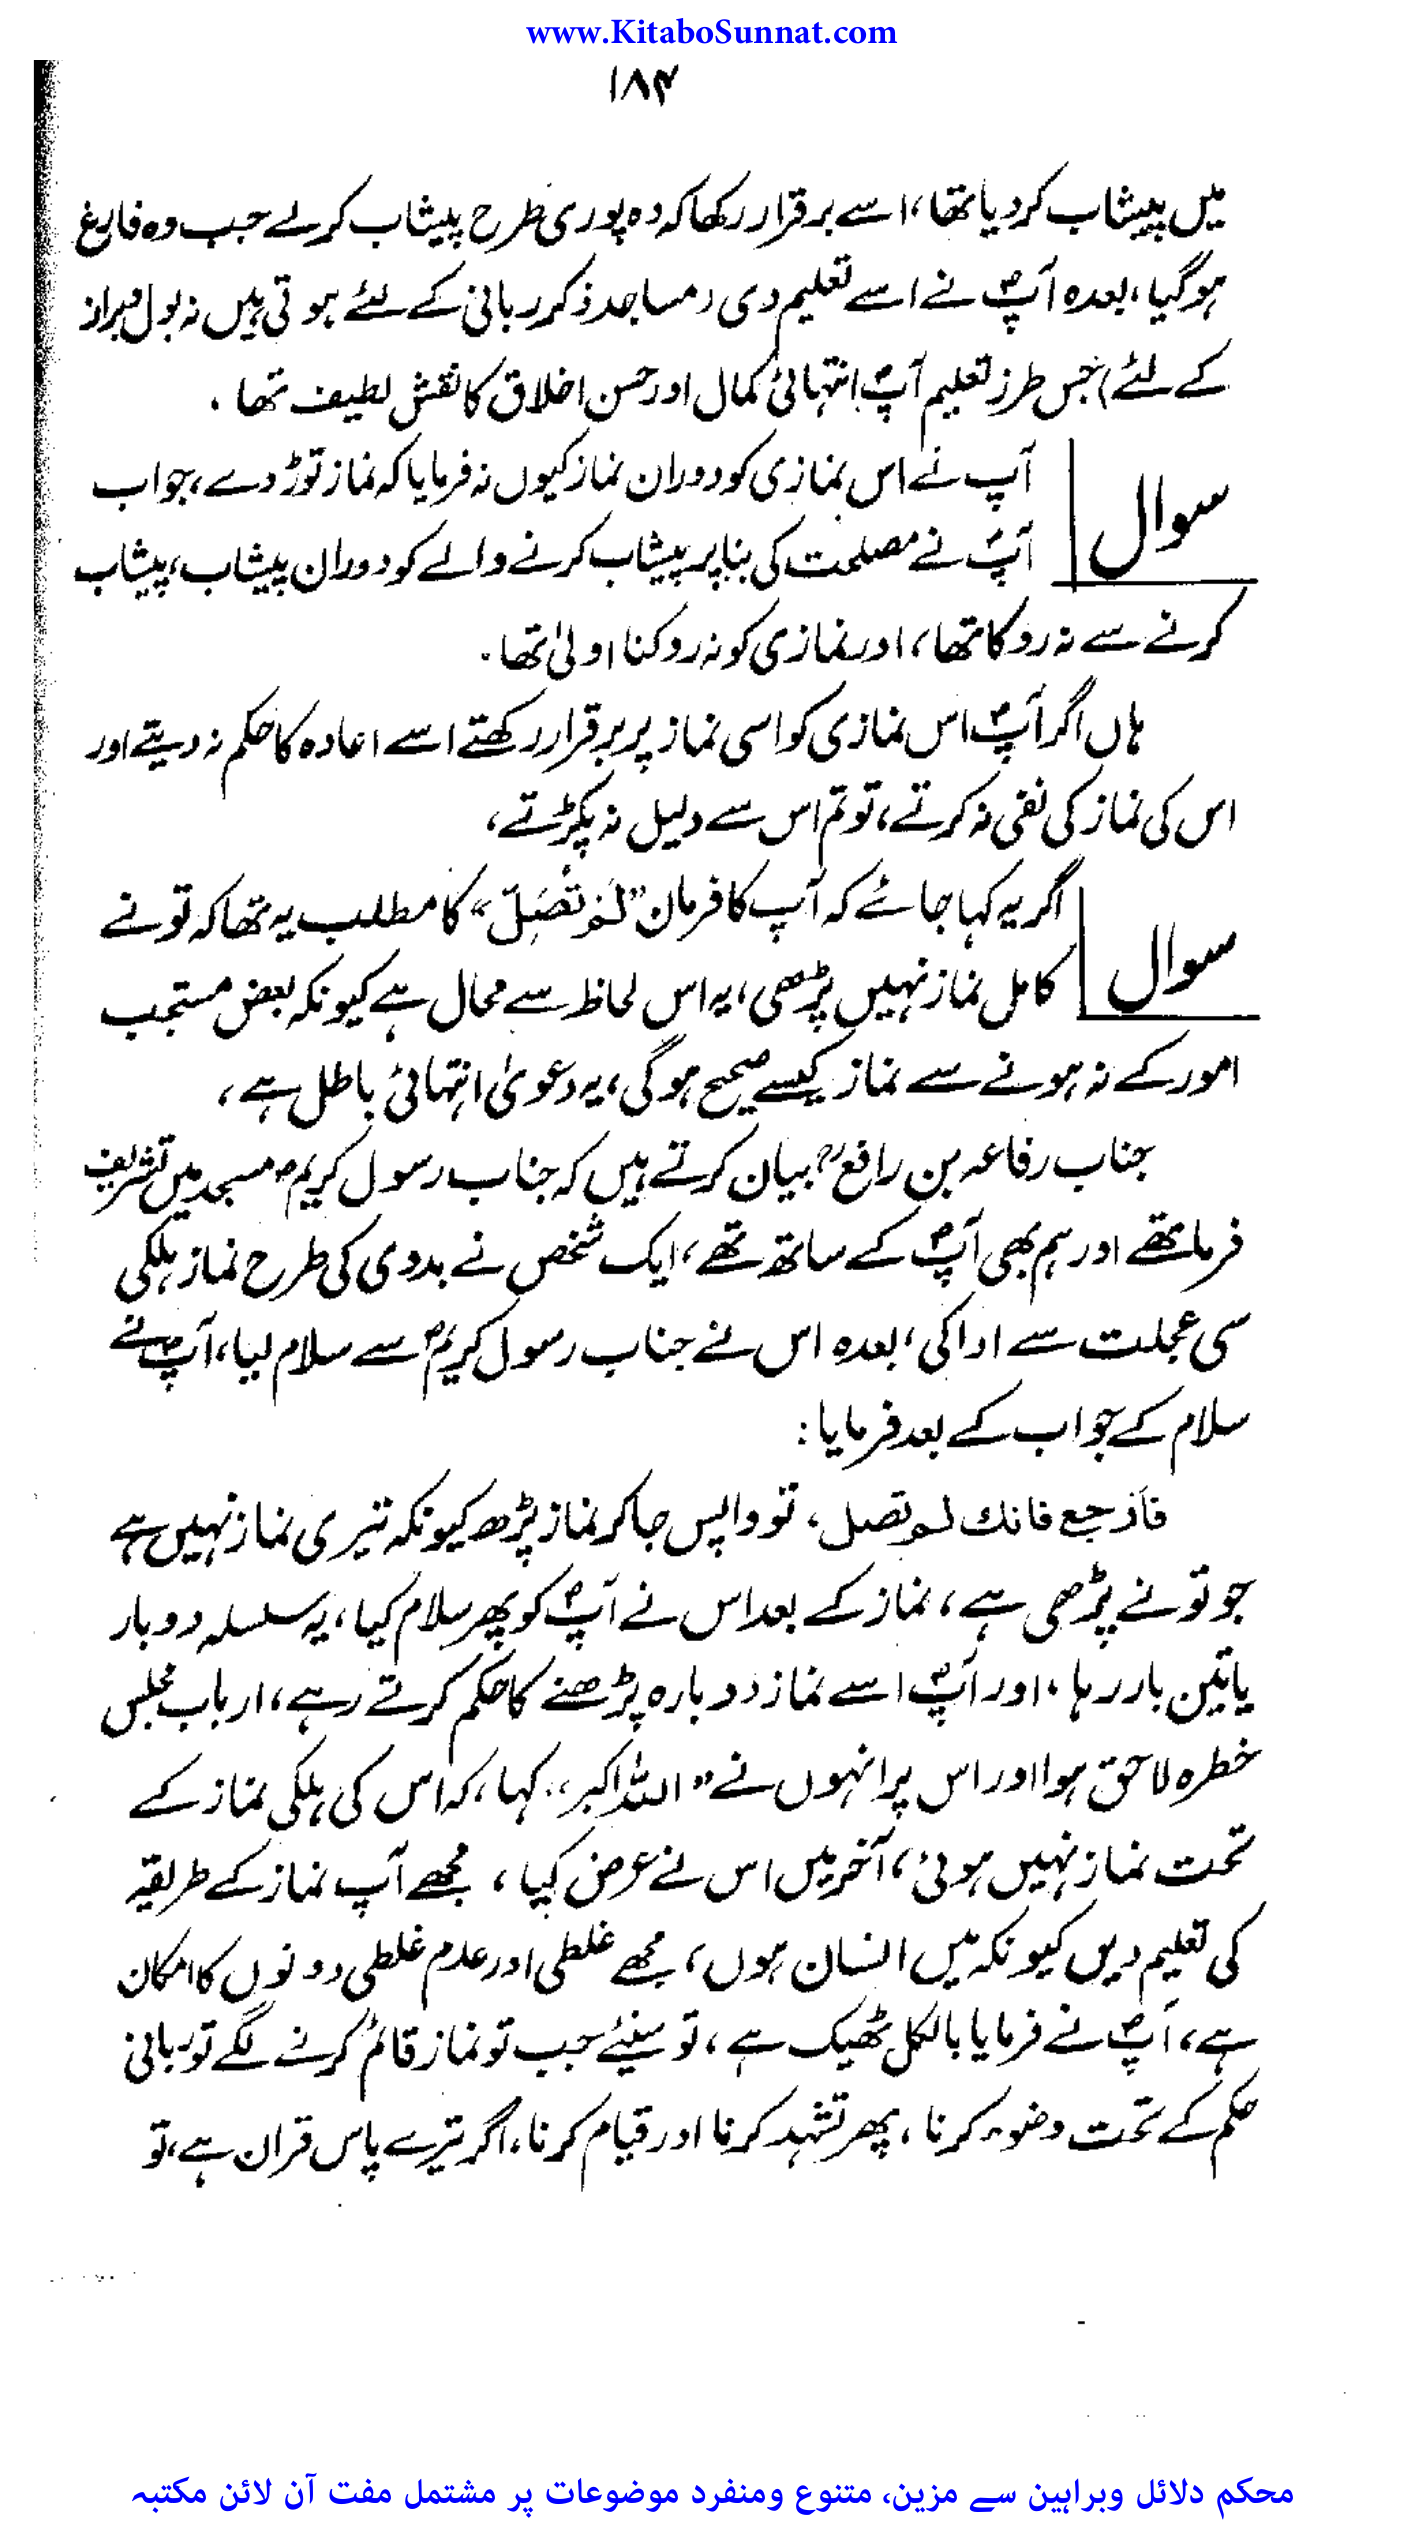 www.KitaboSunnat.com
۱۸۴
میں پیشاب کر دیا تھا، اسے برقرار رکھا کہ وہ پوری طرح پیشاب کر لے جب وہ فارغ
ہو گیا، بعدہ آپؐ نے اسے تعلیم دی (مساجد ذکر ربانی کے لئے ہوتی ہیں نہ بول و براز
کے لئے) جس طرز تعلیم آپؐ انتہائی کمال اور حسن اخلاق کا نقش لطیف تھا۔
سوال آپ نے اس نمازی کو دوران نماز کیوں نہ فرمایا کہ نماز توڑ دے، جواب
آپؐ نے مصلحت کی بنا پر پیشاب کرنے والے کو دوران پیشاب، پیشاب
کرنے سے نہ روکا تھا، اور نمازی کو نہ روکنا اولیٰ تھا۔
ہاں اگر آپؐ اس نمازی کو اسی نماز پر برقرار رکھتے اسے اعادہ کا حکم نہ دیتے اور
اس کی نماز کی نفی نہ کرتے، تو تم اس سے دلیل نہ پکڑتے،
سوال اگر یہ کہا جائے کہ آپ کا فرمان ”لَمْ تُصَلِّ“ کا مطلب یہ تھا کہ تو نے
کامل نماز نہیں پڑھی، یہ اس لحاظ سے محال ہے کیونکہ بعض مستحب
امور کے نہ ہونے سے نماز کیسے صحیح ہو گی، یہ دعویٰ انتہائی باطل ہے،
جناب رفاعہ بن رافعؓ بیان کرتے ہیں کہ جناب رسول کریمؐ مسجد میں تشریف
فرما تھے اور ہم بھی آپؐ کے ساتھ تھے، ایک شخص نے بدوی کی طرح نماز ہلکی
سی عجلت سے ادا کی، بعدہ اس نے جناب رسول کریمؐ سے سلام لیا، آپؐ نے
سلام کے جواب کے بعد فرمایا:
فارجع فانك لم تصل، تو واپس جا کر نماز پڑھ کیونکہ تیری نماز نہیں ہے
جو تو نے پڑھی ہے، نماز کے بعد اس نے آپؐ کو پھر سلام کیا، یہ سلسلہ دو بار
یا تین بار رہا، اور آپؐ اسے نماز دوبارہ پڑھنے کا حکم کرتے رہے، ارباب مجلس
خطرہ لاحق ہوا اور اس پر انہوں نے ”اللہ اکبر“ کہا، کہ اس کی ہلکی نماز کے
تحت نماز نہیں ہوئی، آخر میں اس نے عرض کیا، مجھے آپ نماز کے طریقہ
کی تعلیم دیں کیونکہ میں انسان ہوں، مجھے غلطی اور عدم غلطی دونوں کا امکان
ہے، آپؐ نے فرمایا بالکل ٹھیک ہے، تو سنیئے جب تو نماز قائم کرنے لگے تو ربانی
حکم کے تحت وضوء کرنا، پھر تشہد کرنا اور قیام کرنا، اگر تیرے پاس قران ہے، تو
محکم دلائل وبراہین سے مزین، متنوع ومنفرد موضوعات پر مشتمل مفت آن لائن مکتبہ